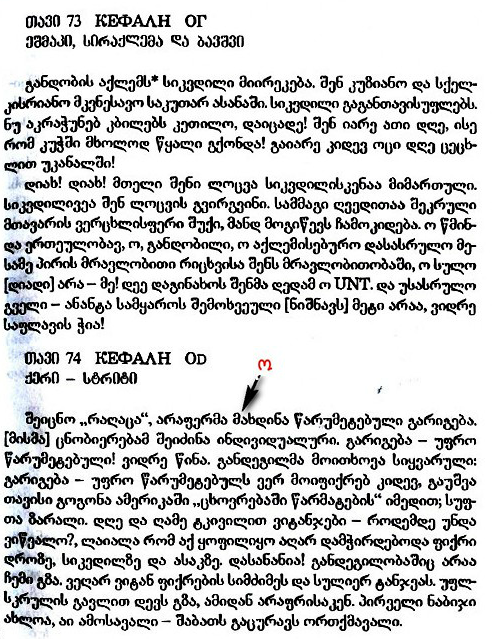 თავი 73 ΚΕΦΑΛΗ ΟΓ
ეშმაკი, სირაქლემა და ბავშვი
განდობის აქლემს* სიკვდილი მიირეკება. შენ კუზიანო და სქელ-
კისრიანო მკენესავო საკუთარ ასანაში. სიკვდილი გაგანთავისუფლებს.
ნუ აკრაჭუნებ კბილებს კეთილო, დაიცადე! შენ იარე ათი დღე, ისე
რომ კუჭში მხოლოდ წყალი გქონდა! გაიარე კიდევ ოცი დღე ცეცხ-
ლით უკანალში!
დიახ! დიახ! მთელი შენი ლოცვა სიკვდილისკენაა მიმართული.
სიკვდილივეა შენ ლოცვის გვირგვინი. სამმაგი ღვედითაა შეკრული
მთავარის ვერცხლისფერი შუქი, მანდ მოგიწევს ჩამოკიდება. ო წმინ-
და ერთეულობავ, ო, განდობილო, ო აქლემისებურო დასასრულო მე-
სამე პირის მრავლობითი რიცხვისა შენს მრავლობითობაში, ო სულო
[დიადი] არა – მე! დეე დაგინახოს შენმა დედამ ო UNT. და უსასრულო
გველი – ანანტა სამყაროს შემოხვეული [ნიშნავს] მეტი არაა, ვიდრე
საფლავის ჭია!
თავი 74 ΚΕΦΑΛΗ ΟD
ქერი – სტრიტი
ო
შეიცნო „რაღაცა“, არაფერმა მახდინა წარუმეტებული გარიგება.
[მისმა] ცნობიერებამ შეიძინა ინდივიდუალური. გარიგება – უფრო
წარუმეტებული! ვიდრე წინა. განდეგილმა მოითხოვა სიყვარული:
გარიგება – უფრო წარუმეტებულს ვერ მოიფიქრებ კიდევ, გაუშვა
თავისი გოგონა ამერიკაში „ცხოვრებაში წარმატების“ იმედით; სუფ-
თა ზარალი. დღე და ღამე ტკივილით ვიტანჯები – როდემდე უნდა
ვიწვალო?, ლაიალა რომ აქ ყოფილიყო აღარ დამჭირდებოდა ფიქრი
დროზე, სიკედილზე და ასაკზე. დასანანია! განდეგილობაშიც არაა
ჩემი გზა. ვეღარ ვიტან ფიქრების სიმძიმეს და სულიერ ტანჯვას. უფლ-
სკრულის გავლით დევს გზა, ამიდან არაფრისაკენ. პირველი ნაბიჯი
ახლოა, აი ამოსავალი – შაბათს გაცურავს ორთქმავალი.